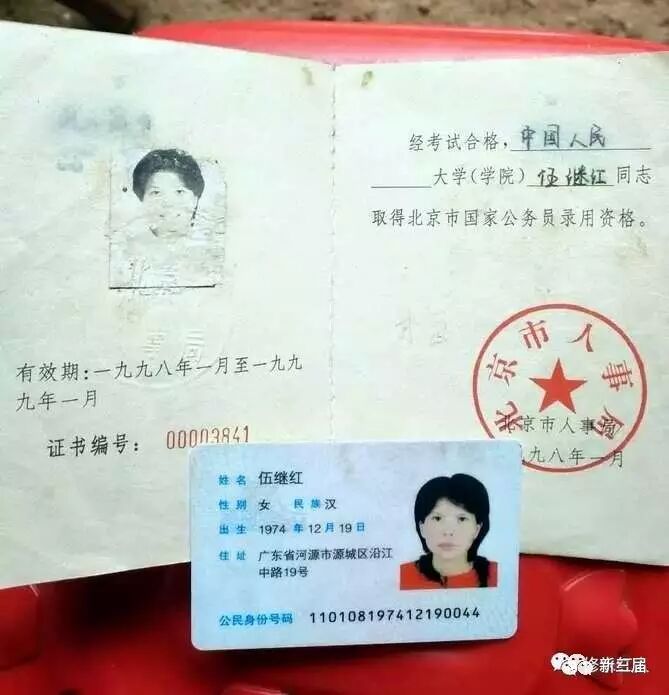 有效期:一九九八年一月至一九九
九年一月
证书编号: 00003841
经考试合格,中国人民
大学(学院)伍继红同志
取得北京市国家公务员录用资格。
北京市人事局
北京市人事局
一九九八年一月
姓名 伍继红
性别 女 民族 汉
出生 1974 年 12 月 19 日
住址 广东省河源市源城区沿江
中路19号
公民身份号码 110108197412190044
修新三届